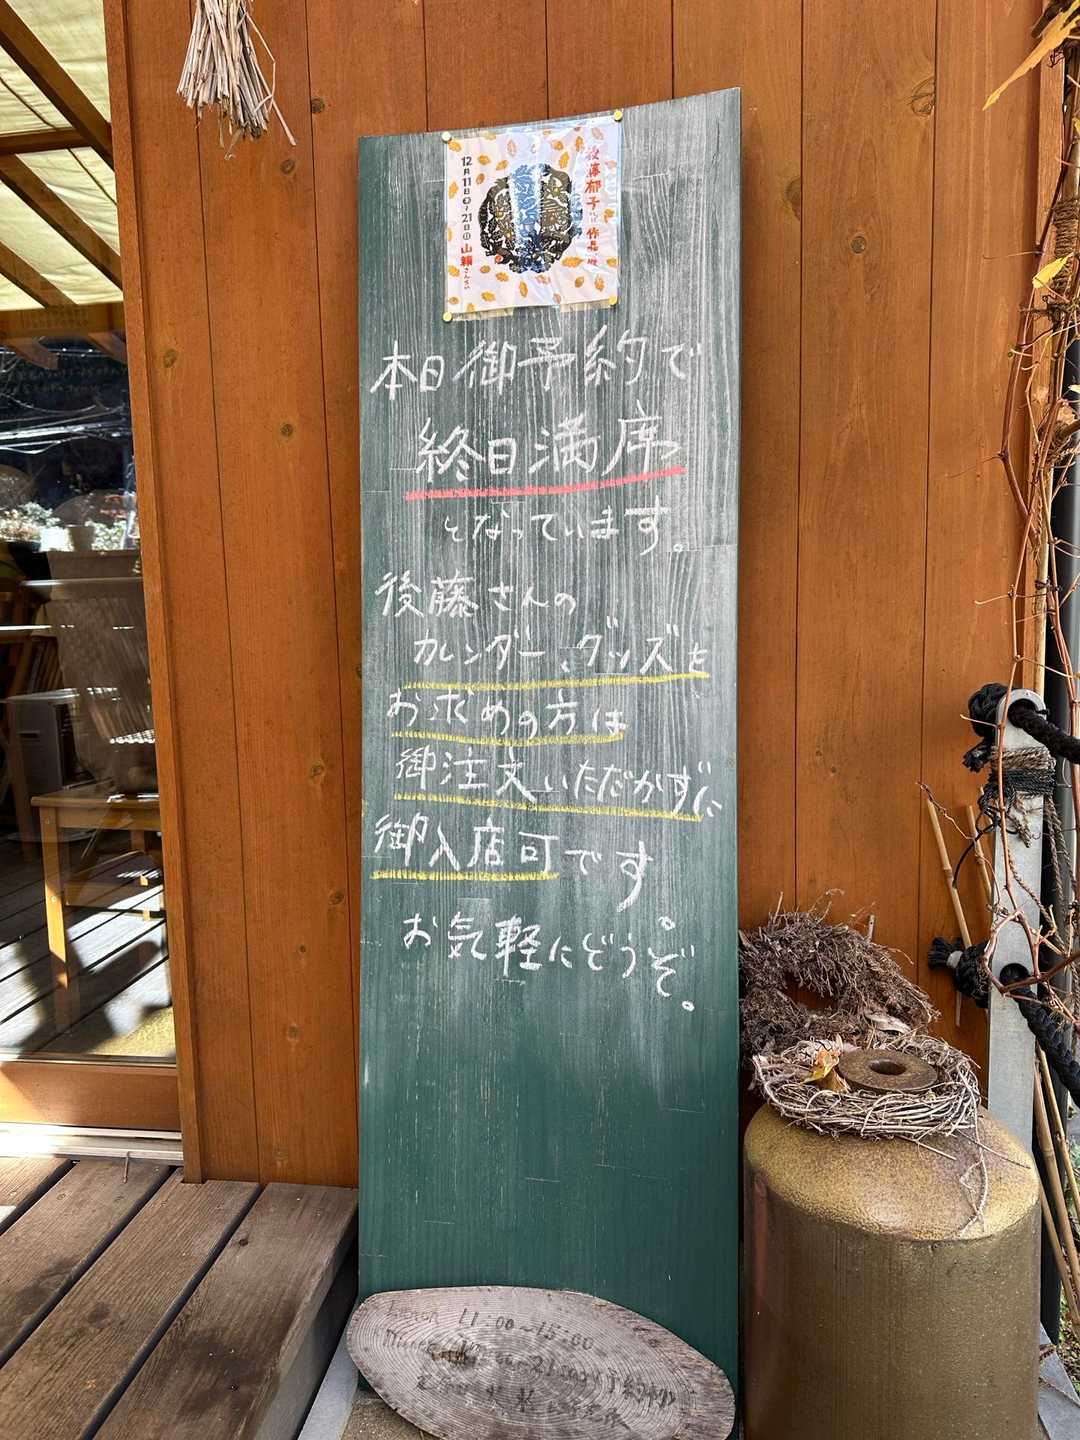 後藤郁子 作品展
12月11日〜21日
山頼
さんらい
本日御予約で
終日満席
となっています。
後藤さんの
カレンダー、グッズを
お求めの方は
御注文いただかずに
御入店可です。
お気軽にどうぞ。
11:00〜15:00